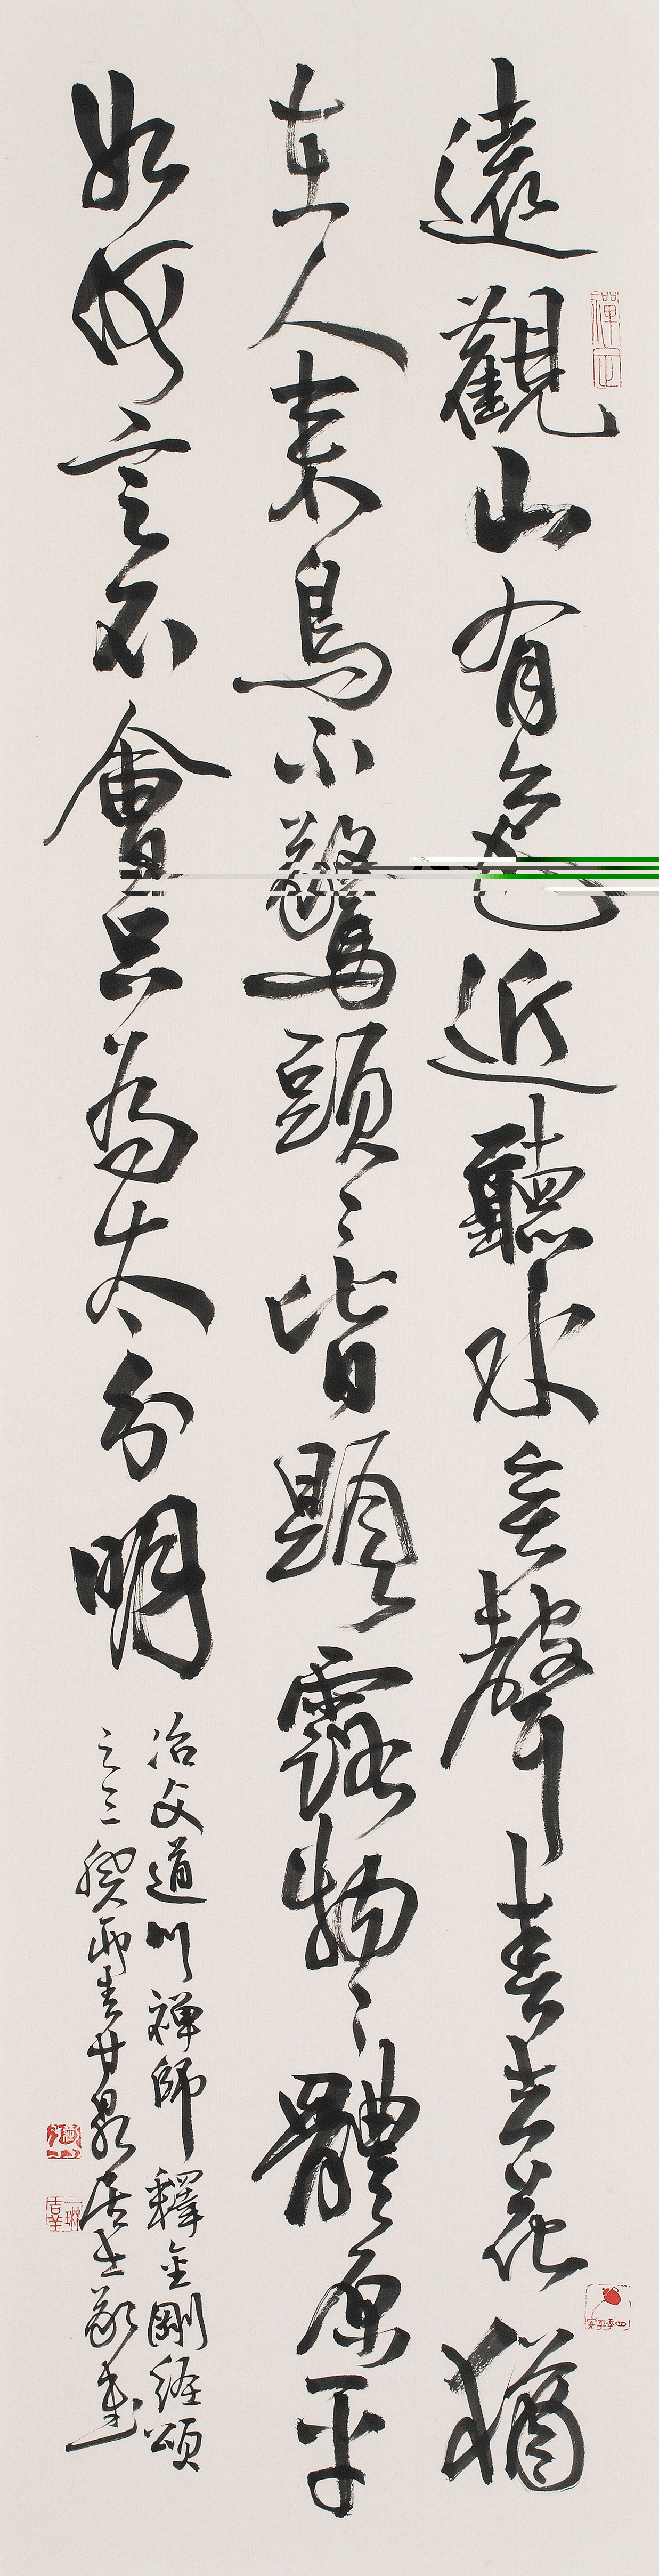 遠觀山有色近聽水無聲春去花猶
在人來鳥不驚頭〻皆顯露物〻體原平
如何言不會只為太分明
冶父道川禪師釋金剛經頌
之三癸卯春甘泉居士敬書